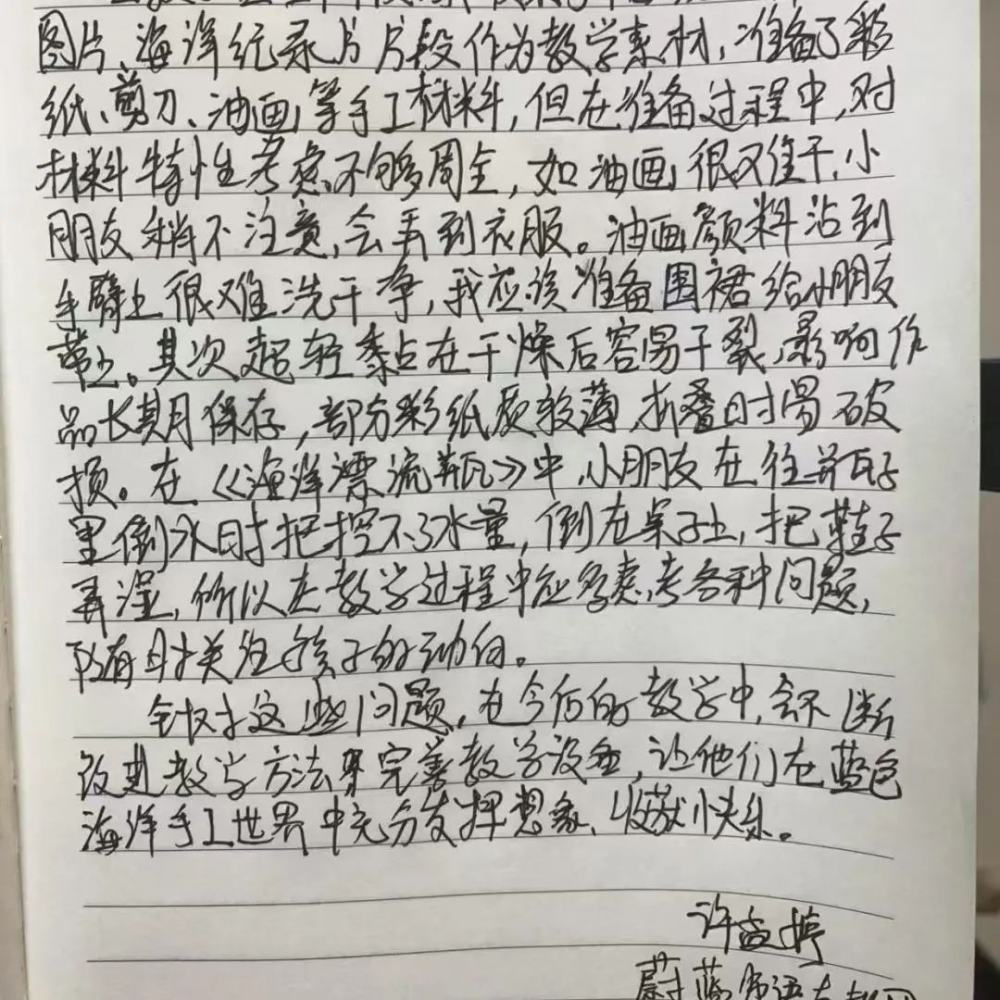 图片、海洋纪录片片段作为教学素材,准备了彩
纸、剪刀、油画等手工材料,但在准备过程中,对
材料特性考虑不够周全,如油画很难干,小
朋友稍不注意,会弄到衣服。油画颜料沾到
手臂上很难洗干净,我应该准备围裙给小朋友
带上。其次超轻黏土在干燥后容易干裂,影响作
品长期保存,部分彩纸质较薄,折叠时易破
损。在《海洋漂流瓶》中,小朋友在往瓶子
里倒水时把控不了水量,倒在桌子上,把鞋子
弄湿,所以在教学过程中应多考虑各种问题,
随时关注孩子的动向。
针对这些问题,在今后的教学中,会不断
改进教学方法,完善教学设计,让他们在蓝色
海洋手工世界中充分发挥想象、收获快乐。
许孟婷
蔚蓝